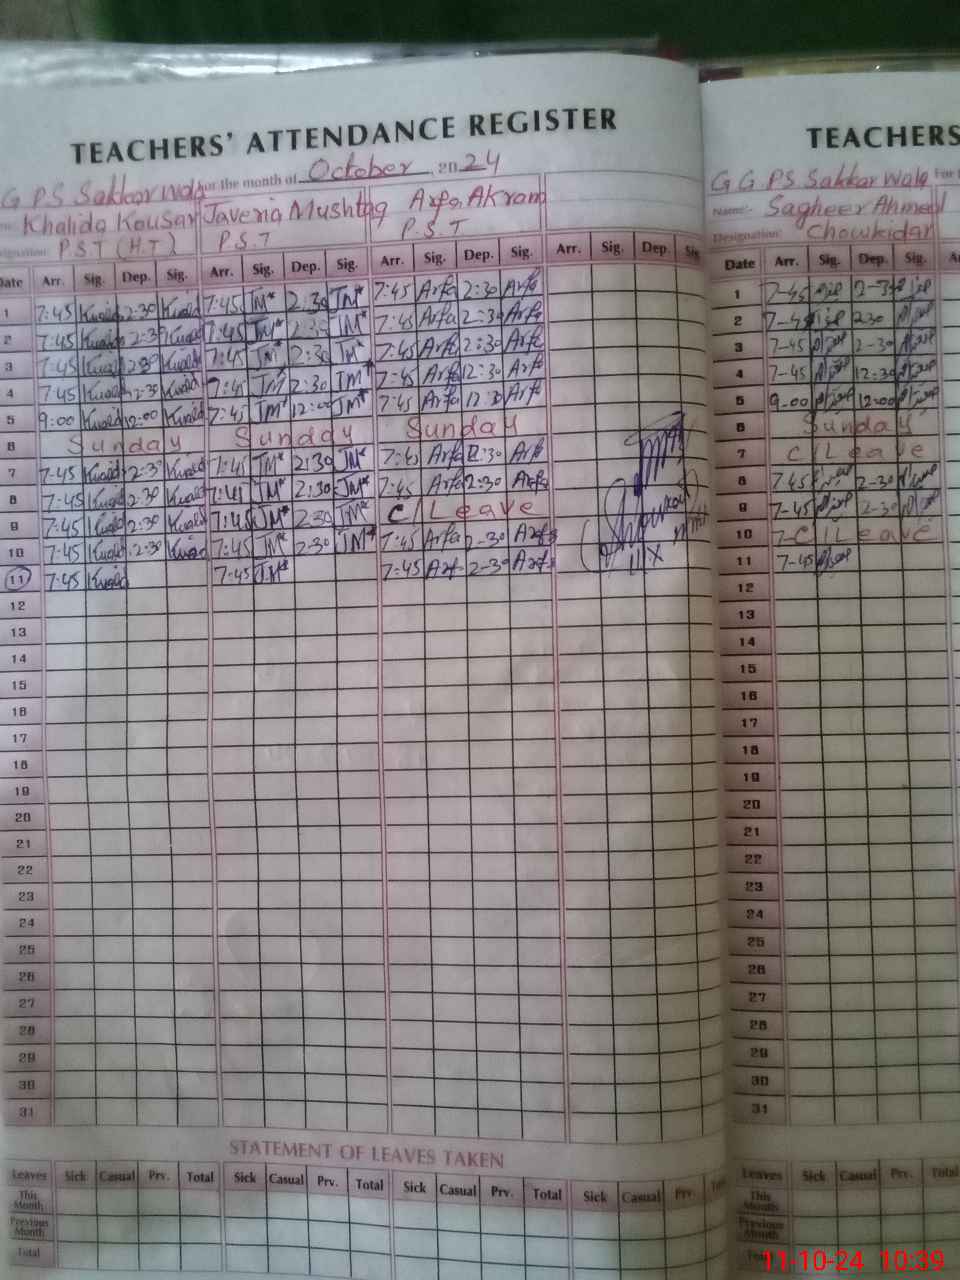 TEACHERS' ATTENDANCE REGISTER
G G P S Sakkar wala For the month of October, 2024
Khalida Kousar Javeria Mushtaq Arfa Akram
P.S.T (H.T) P.S.T P.S.T
Date Arr. Sig. Dep. Sig. Arr. Sig. Dep. Sig. Arr. Sig. Dep. Sig. Arr. Sig. Dep. Sig
1 7:45 2:30 7:45 JM* 2:30 JM* 7:45 Arfa 2:30 Arfa
2 7:45 2:30 7:45 JM* 2:30 JM* 7:45 Arfa 2:30 Arfa
3 7:45 2:30 7:45 JM* 2:30 JM* 7:45 Arfa 2:30 Arfa
4 7:45 2:30 7:45 JM* 2:30 JM* 7:45 Arfa 2:30 Arfa
5 9:00 12:00 7:45 JM* 12:00 JM* 7:45 Arfa Arfa
6 Sunday Sunday Sunday
7 7:45 2:30 7:45 JM* 2:30 JM* 7:45 Arfa 2:30 Arfa
8 7:45 2:30 7:45 JM* 2:30 JM* 7:45 Arfa 2:30 Arfa
9 7:45 2:30 7:45 JM* 2:30 JM* C/Leave
10 7:45 2:30 7:45 JM* 2:30 JM* 7:45 Arfa 2-30 Arfa
11 7:45 7:45 JM* 7:45 Arf 2-30 Arfa
12
13
14
15
16
17
18
19
20
21
22
23
24
25
26
27
28
29
30
31
STATEMENT OF LEAVES TAKEN
Leaves Sick Casual Prv. Total Sick Casual Prv. Total Sick Casual Prv. Total Sick Casual Prv.
This Month
Previous Month
Total
TEACHERS
G G P S Sakkar wala For
Name:- Sagheer Ahmed
Designation: Chowkidar
Date Arr. Sig. Dep. Sig.
1 7-45 2-30
2 7-45 2-30
3 7-45 2-30
4 7-45 12:30
5 9-00 12:00
6 Sunday
7 C/Leave
8 7-45 2-30
9 7-45 2-30
10 C/Leave
11 7-45
12
13
14
15
16
17
18
19
20
21
22
23
24
25
26
27
28
29
30
31
Leaves Sick Casual Prv. Total
This Month
Previous Month
11-10-24 10:39